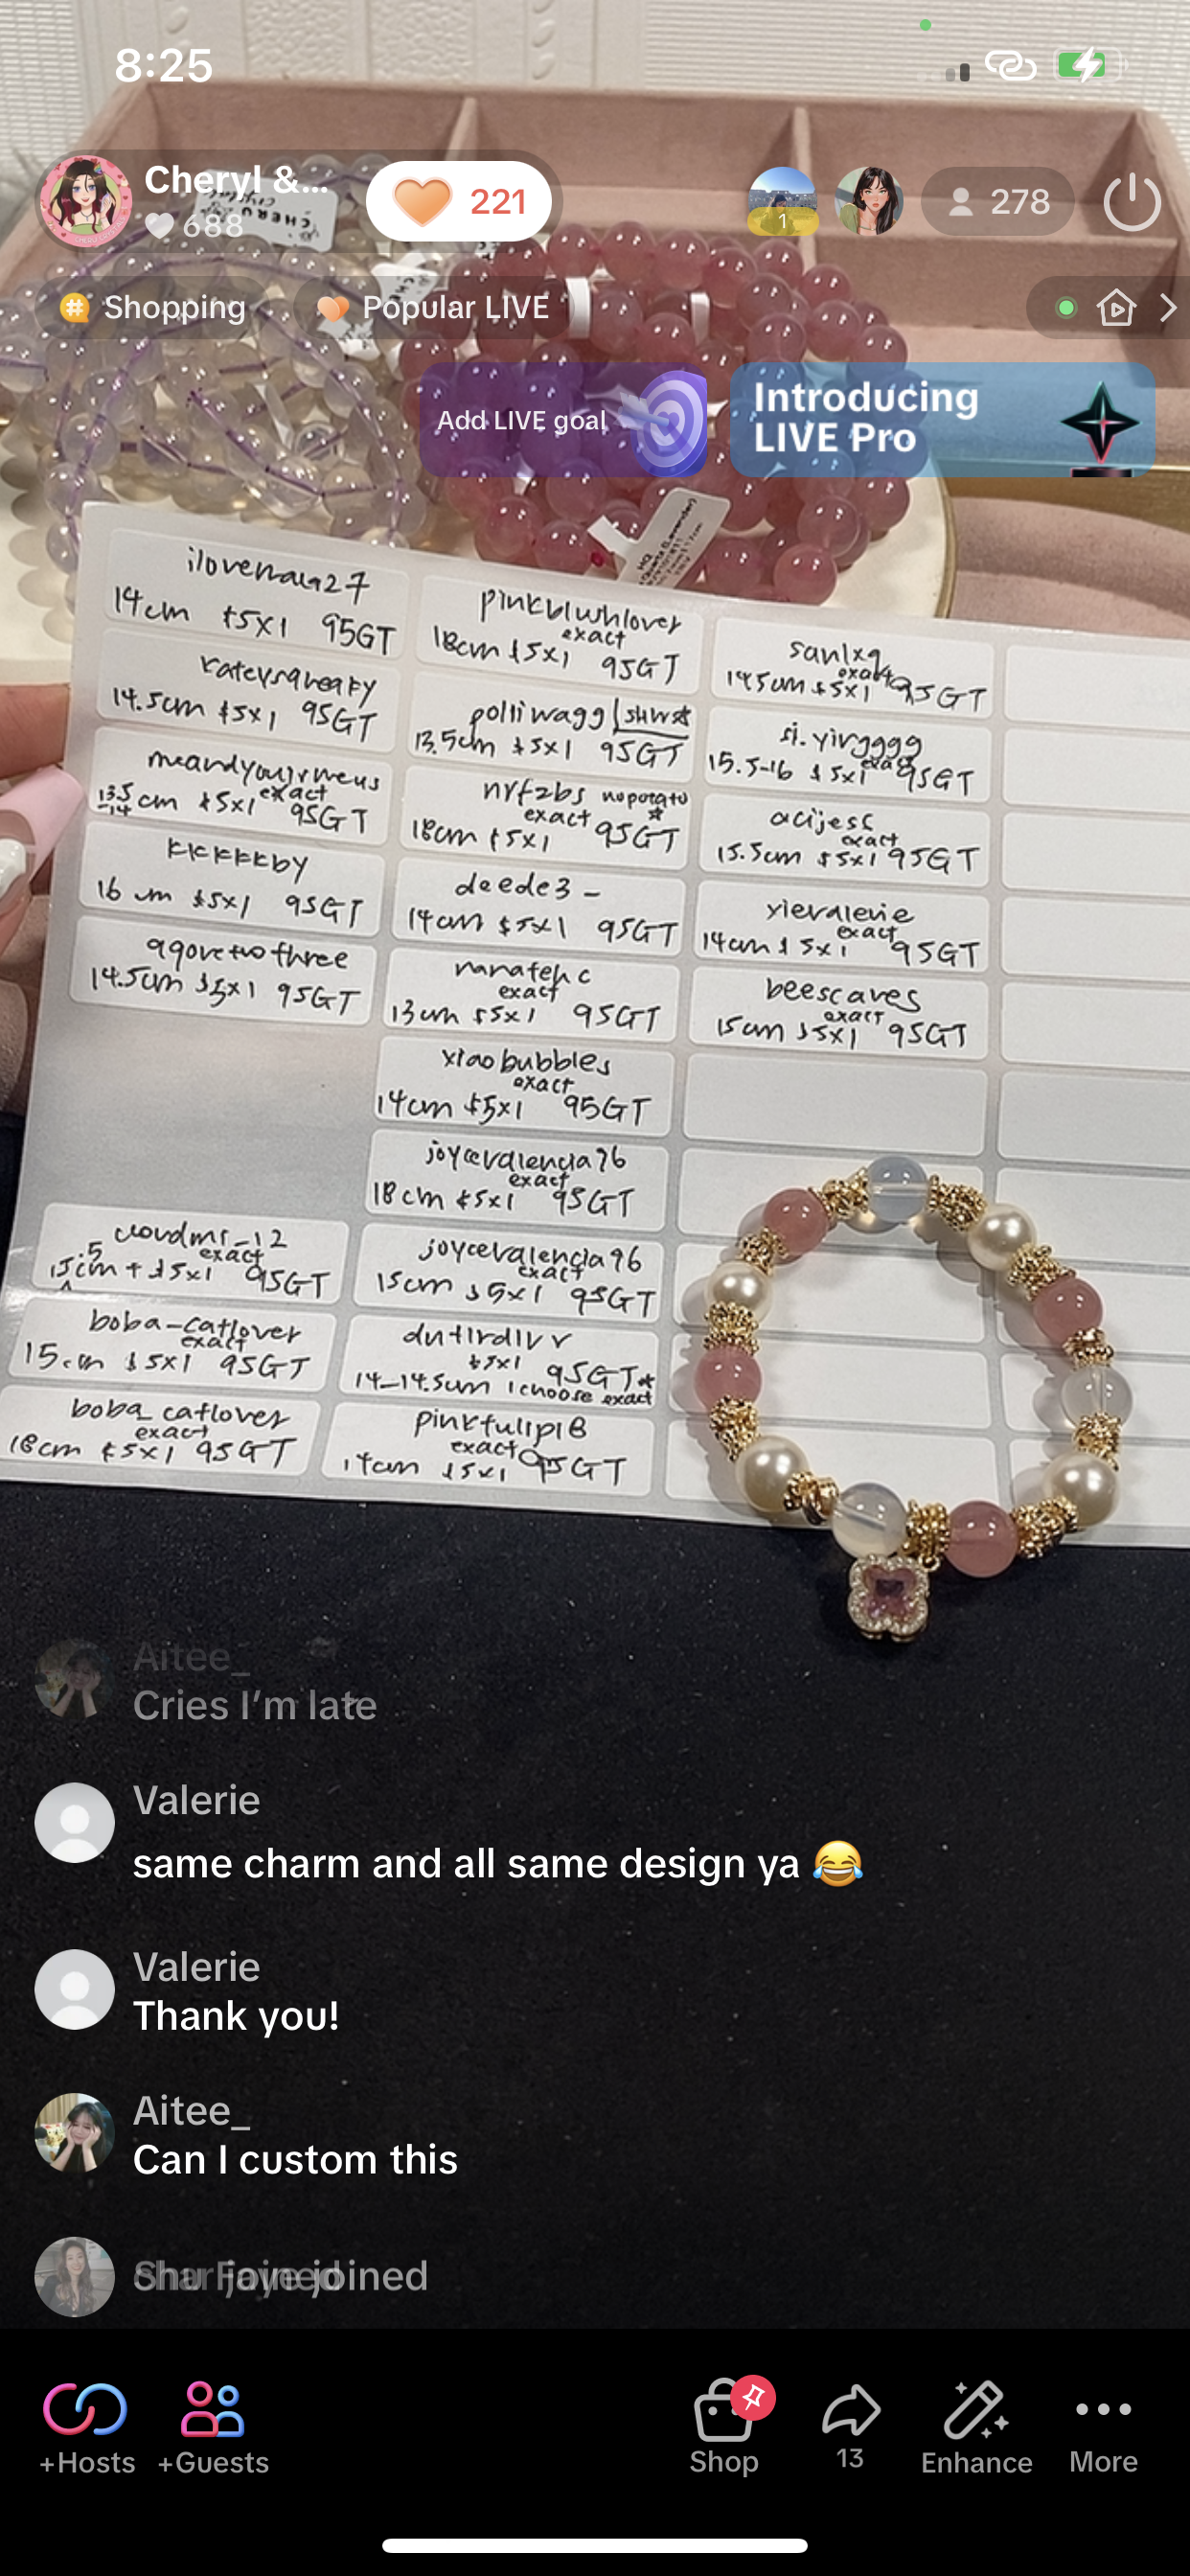 8:25
Cheryl &...
688
221
1
278
Shopping
Popular LIVE
Add LIVE goal
Introducing
LIVE Pro
14cm $5x1 95GT
pinkblushlover
exact
18cm $5x1 95GT
sanlxq
exact
14.5cm $5x1 95GT
14.5cm $5x1 95GT
polliwagg
13.5cm $5x1 95GT
si.yingggg
exact
15.5-16 $5x1 95GT
exact
13.5
-14 cm $5x1 95GT
nrfzbs nopotato
exact
18cm $5x1 95GT
acijesc
exact
15.5cm $5x1 95GT
kkkkkby
16 cm $5x1 95GT
deede3-
14cm $5x1 95GT
xievalerie
exact
14cm $5x1 95GT
agovetwothree
14.5cm $5x1 95GT
nanateh c
exact
13cm $5x1 95GT
beescaves
exact
15cm $5x1 95GT
xiaobubbles
exact
14cm $5x1 95GT
joycevalencia96
exact
18cm $5x1 95GT
exact
$5x1 95GT
joycevalencia96
exact
15cm $5x1 95GT
boba-catlover
exact
15cm $5x1 95GT
$5x1 95GT*
14-14.5cm 1 choose exact
boba_catlover
exact
18cm $5x1 95GT
pinktulip18
exact
14cm $5x1 95GT
Aitee_
Cries I’m late
Valerie
same charm and all same design ya 😂
Valerie
Thank you!
Aitee_
Can I custom this
joined
+Hosts
+Guests
Shop
13
Enhance
More